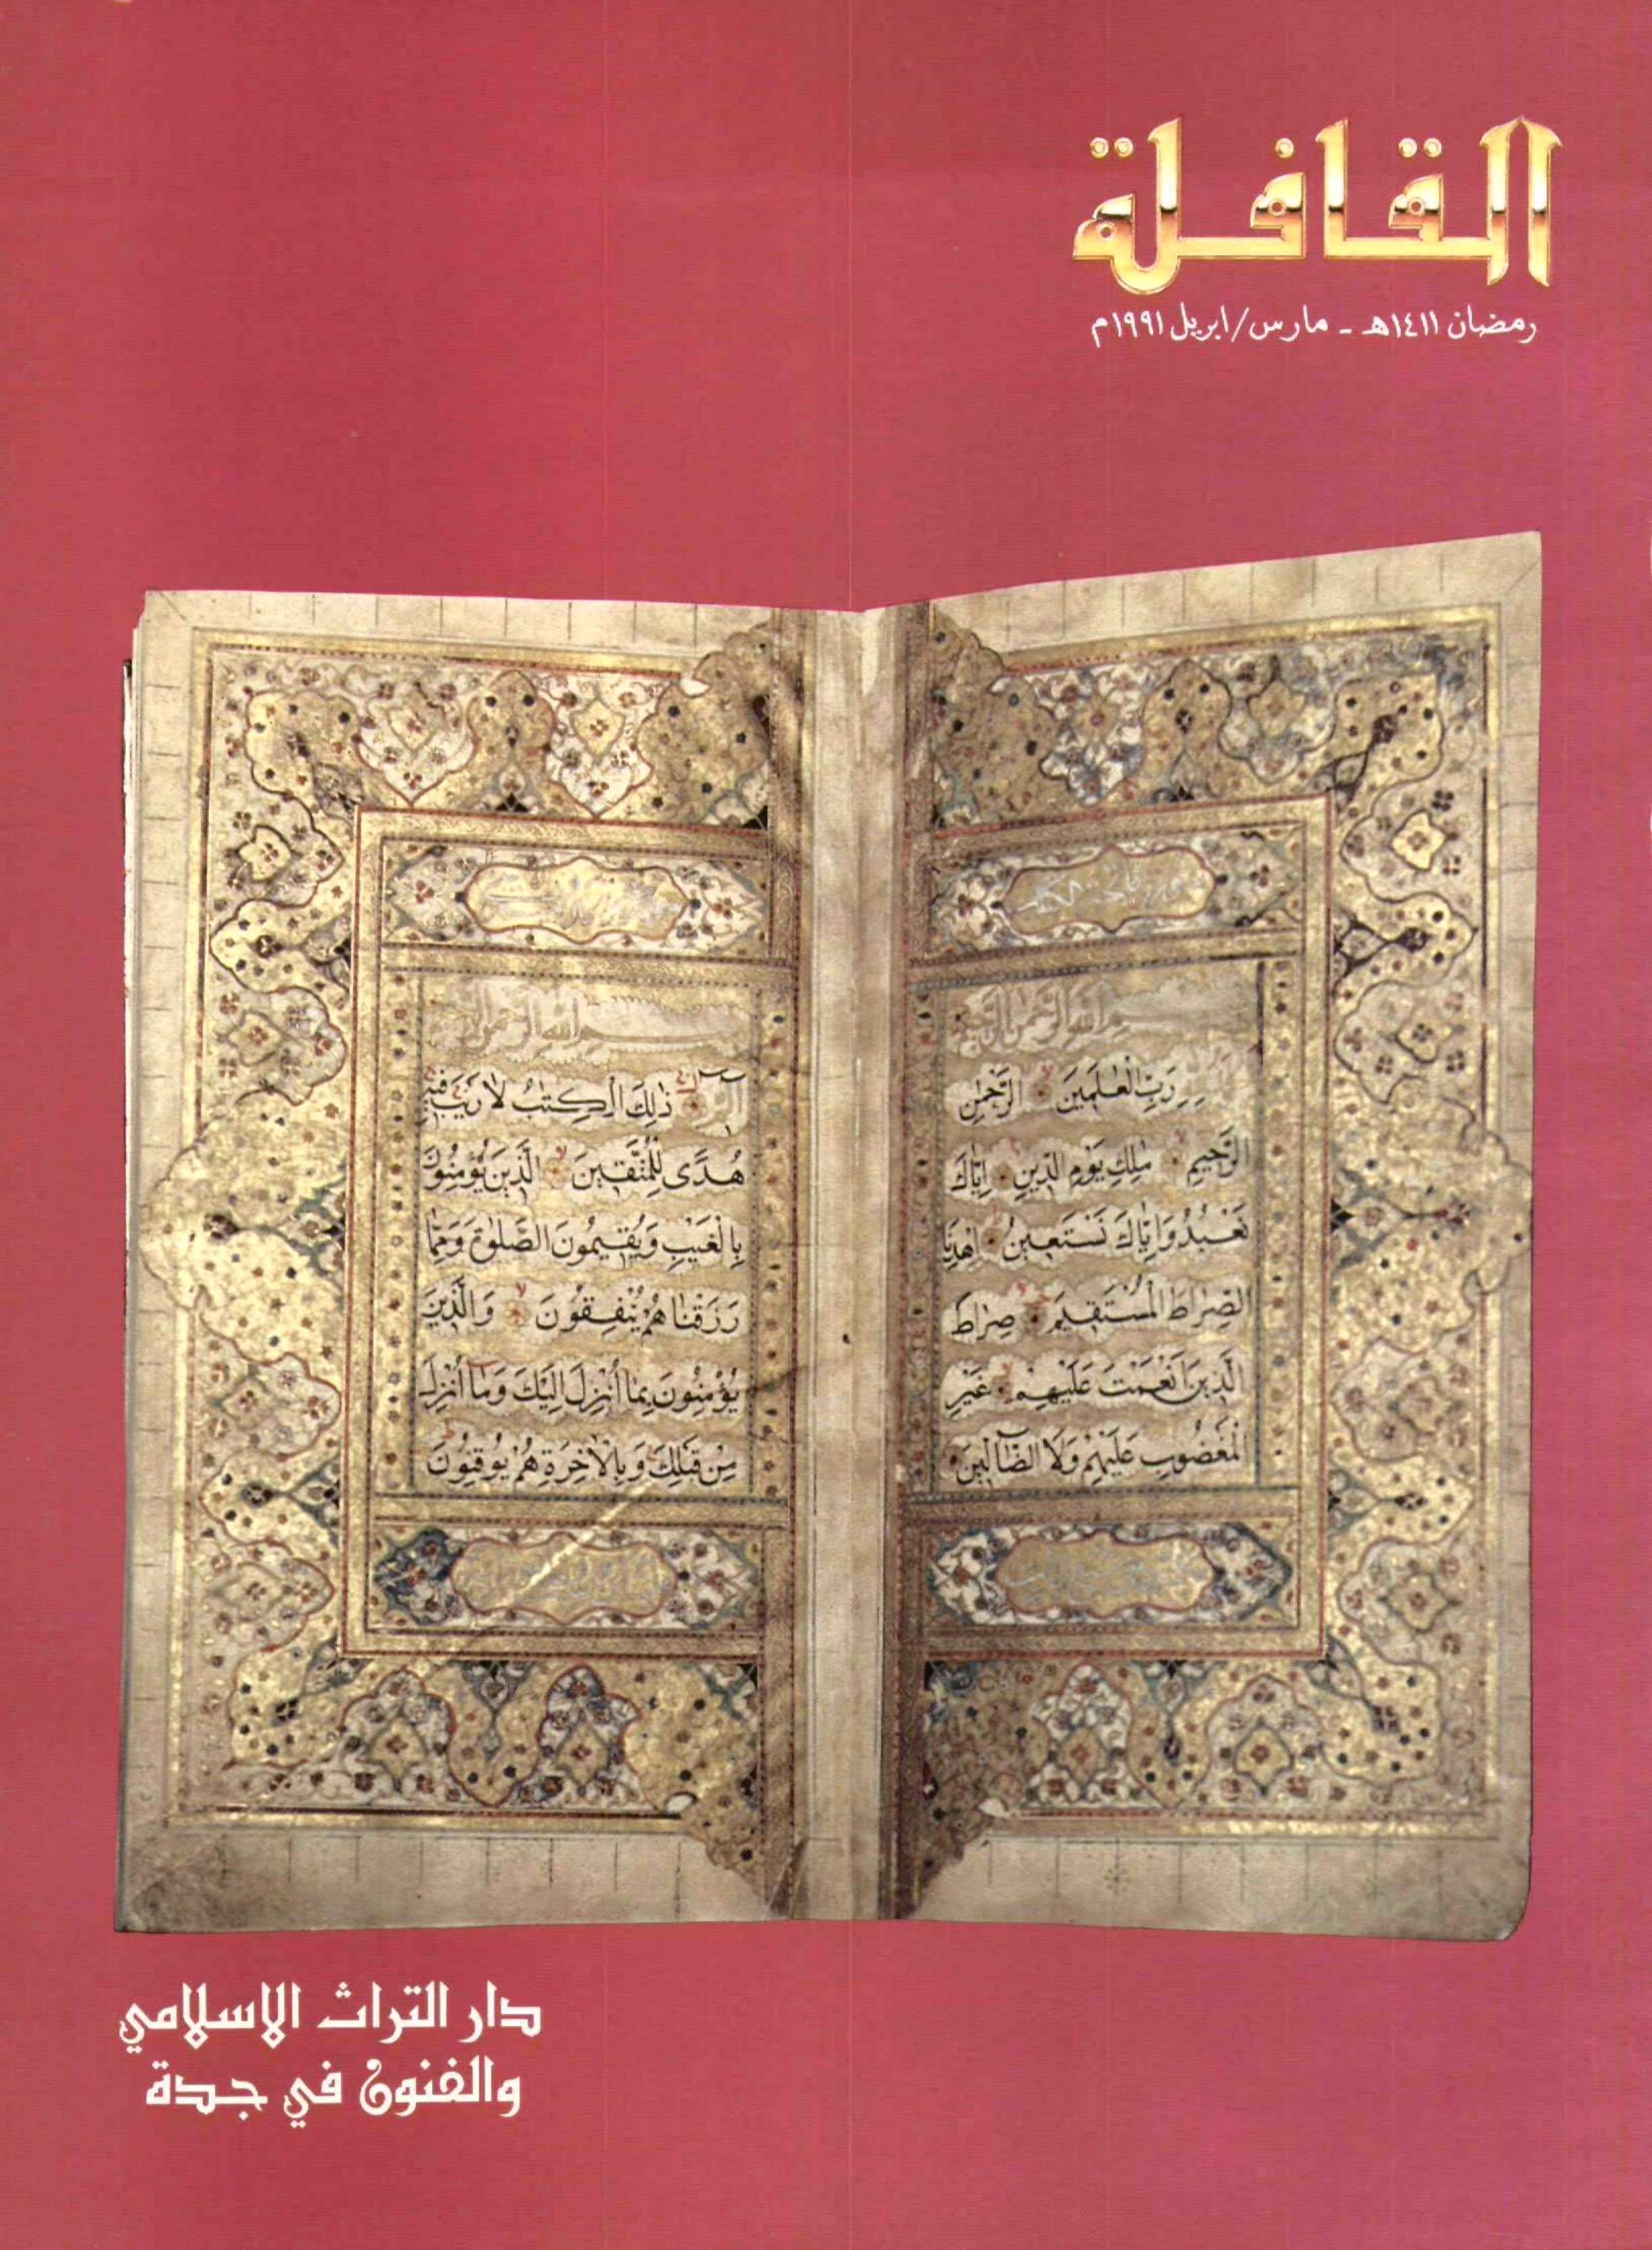 القافلة
رمضان ١٤١١هـ - مارس/ابريل ١٩٩١م
بسم الله الرحمن
رَبِّ الْعٰلَمِينَ الرَّحْمٰنِ
الرَّحِيمِ مٰلِكِ يَوْمِ الدِّينِ اِيَّاكَ
نَعْبُدُ وَاِيَّاكَ نَسْتَعِينُ اِهْدِنَا
الصِّرَاطَ الْمُسْتَقِيمَ صِرَاطَ
الَّذِينَ اَنْعَمْتَ عَلَيْهِمْ غَيْرِ
الْمَغْضُوبِ عَلَيْهِمْ وَلَا الضَّالِّينَ
بسم الله الرحمن
الم ذٰلِكَ الْكِتٰبُ لَا رَيْبَ فِيهِ
هُدًى لِلْمُتَّقِينَ الَّذِينَ يُؤْمِنُونَ
بِالْغَيْبِ وَيُقِيمُونَ الصَّلٰوةَ وَمِمَّا
رَزَقْنَاهُمْ يُنْفِقُونَ وَالَّذِينَ
يُؤْمِنُونَ بِمَا اُنْزِلَ اِلَيْكَ وَمَا اُنْزِلَ
مِنْ قَبْلِكَ وَبِالْاٰخِرَةِ هُمْ يُوقِنُونَ
دار التراث الاسلامي
والفنون في جدة